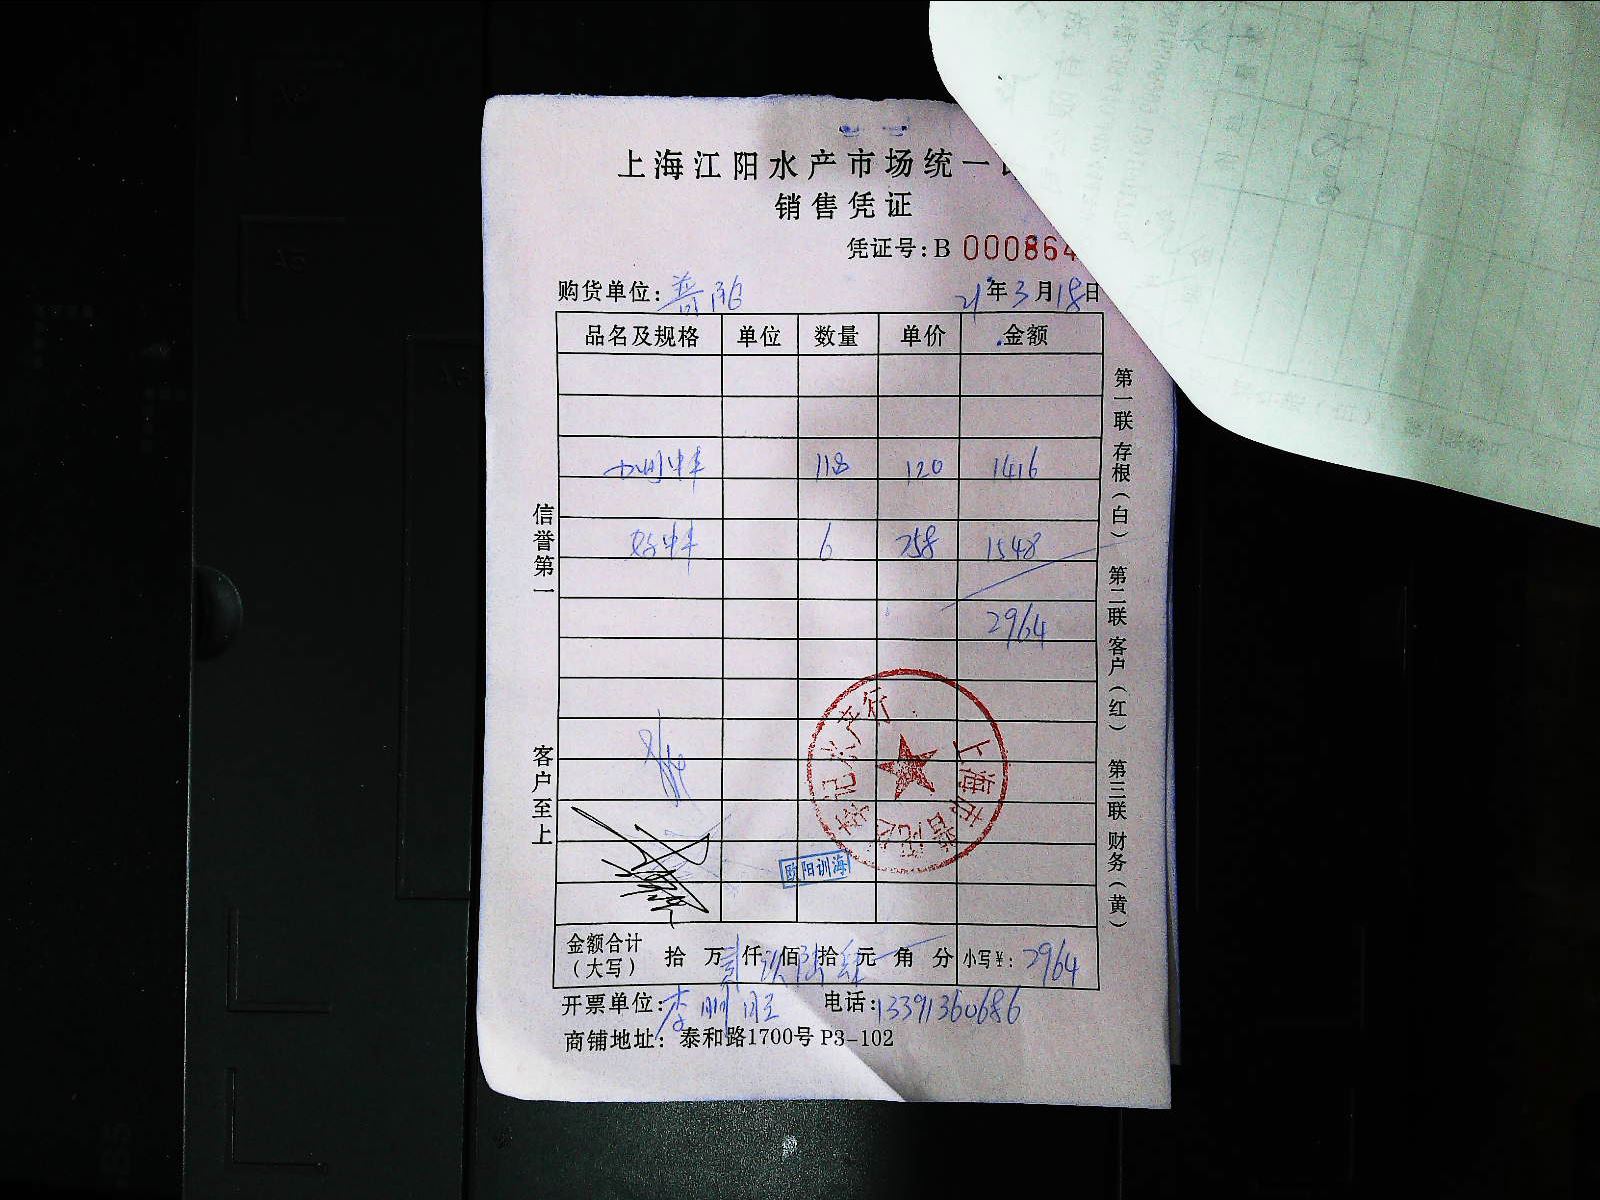 上海江阳水产市场统一
销售凭证
凭证号:B 000864
购货单位: 21年3月18日
品名及规格 单位 数量 单价 金额
118 120 1416
6 258 1548
2964
信誉第一
客户至上
第一联 存根(白) 第二联 客户(红) 第三联 财务(黄)
上海市普陀区 记水产行
欧阳训海
金额合计(大写) 拾 万 贰仟 玖佰 陆拾 肆元 角 分 小写¥: 2964
开票单位: 李 电话: 13391360686
商铺地址: 泰和路1700号 P3-102